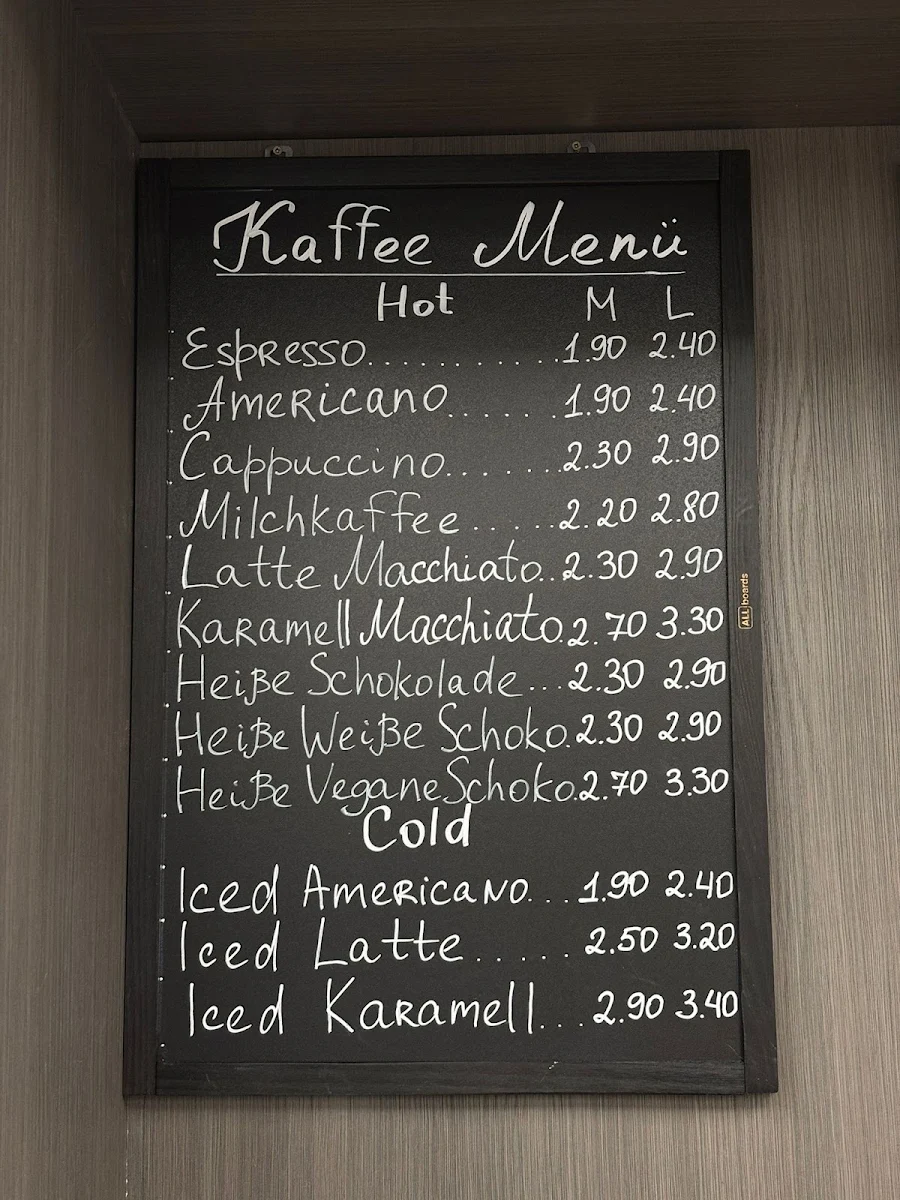 Kaffee Menü
Hot M L
Espresso.............1.90 2.40
Americano.......1.90 2.40
Cappuccino.......2.30 2.90
Milchkaffee......2.20 2.80
Latte Macchiato..2.30 2.90
Karamell Macchiato.2.70 3.30
Heiße Schokolade...2.30 2.90
Heiße Weiße Schoko.2.30 2.90
Heiße Vegane Schoko.2.70 3.30
Cold
Iced Americano...1.90 2.40
Iced Latte......2.50 3.20
Iced Karamell...2.90 3.40
ALLboards